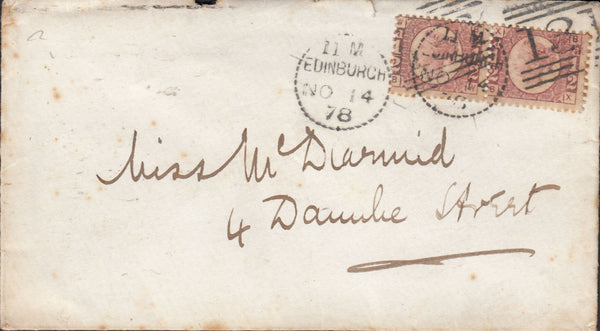 11 M
EDINBURGH
NO 14
78
Miss McDiarmid
4 Danube Street